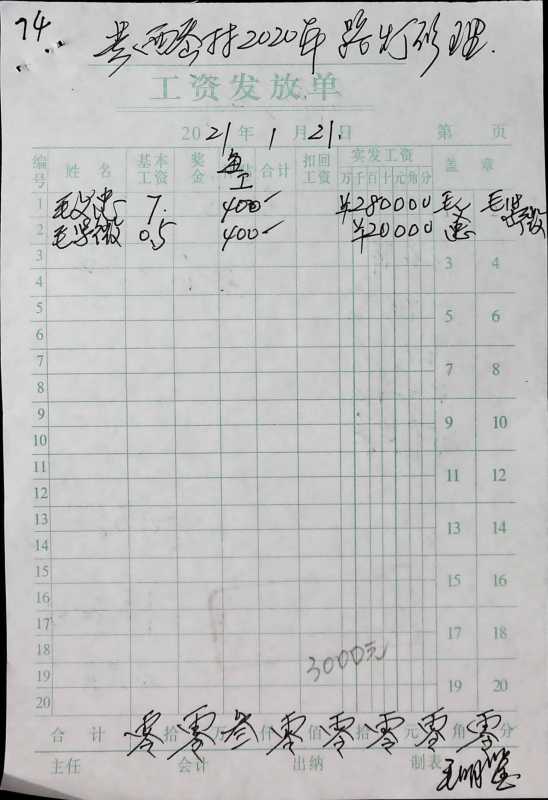 74
西岙村2020年路灯修理.
工资发放单
2021年1月21.日 第 页
编号 姓名 基本工资 奖金 每工 合计 扣回工资 实发工资 万千百十元角分 盖章
1 毛文忠 7. 400- ¥280000 毛忠
2 毛学微 0.5 400- ¥20000 毛学微
3 3 4
4
5 5 6
6
7 7 8
8
9 9 10
10
11 11 12
12
13 13 14
14
15 15 16
16
17 17 18
18 3000元
19 19 20
20
合计 零拾零万叁仟零佰零拾零元零角零分
主任 会计 出纳 制表